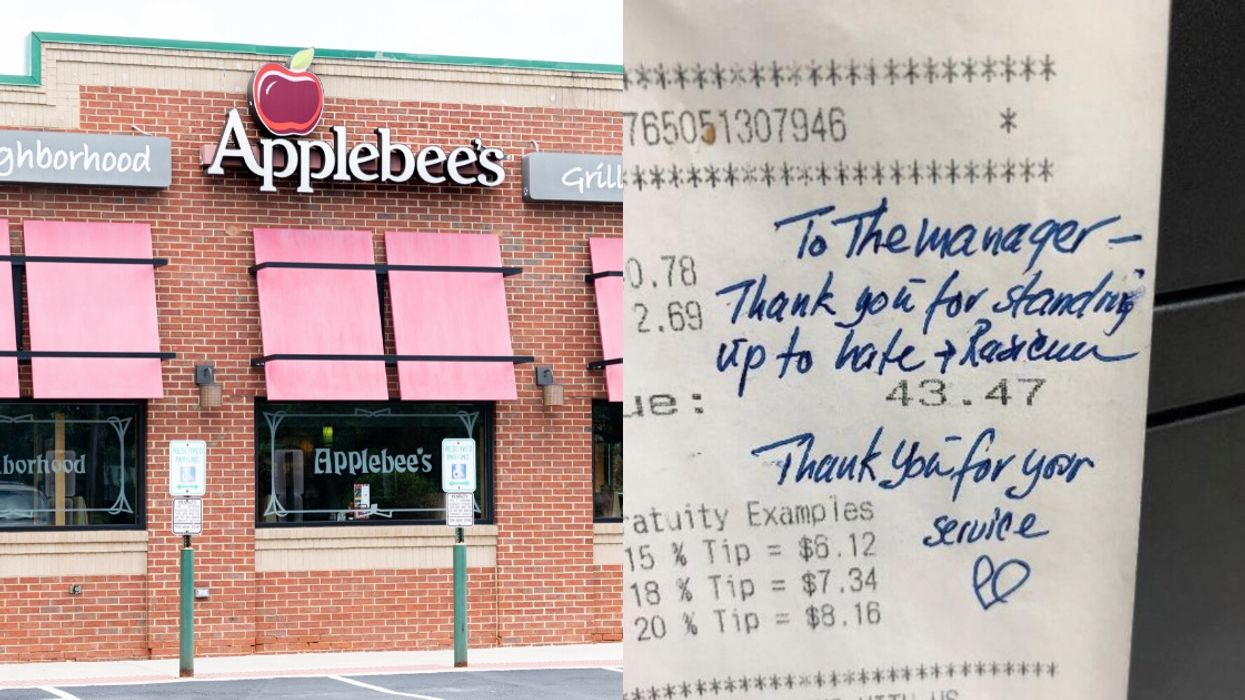 ghborhood
Applebee's
Grill
borhood
Applebee's
RESERVED
PARKING
RESERVED
PARKING
************************
765051307946 *
************************
To The manager-
0.78
Thank you for standing
2.69
up to hate + Racism
ue: 43.47
Thank you for your
service
atuity Examples
15 % Tip = $6.12
18 % Tip = $7.34
20 % Tip = $8.16
************************
WITH US